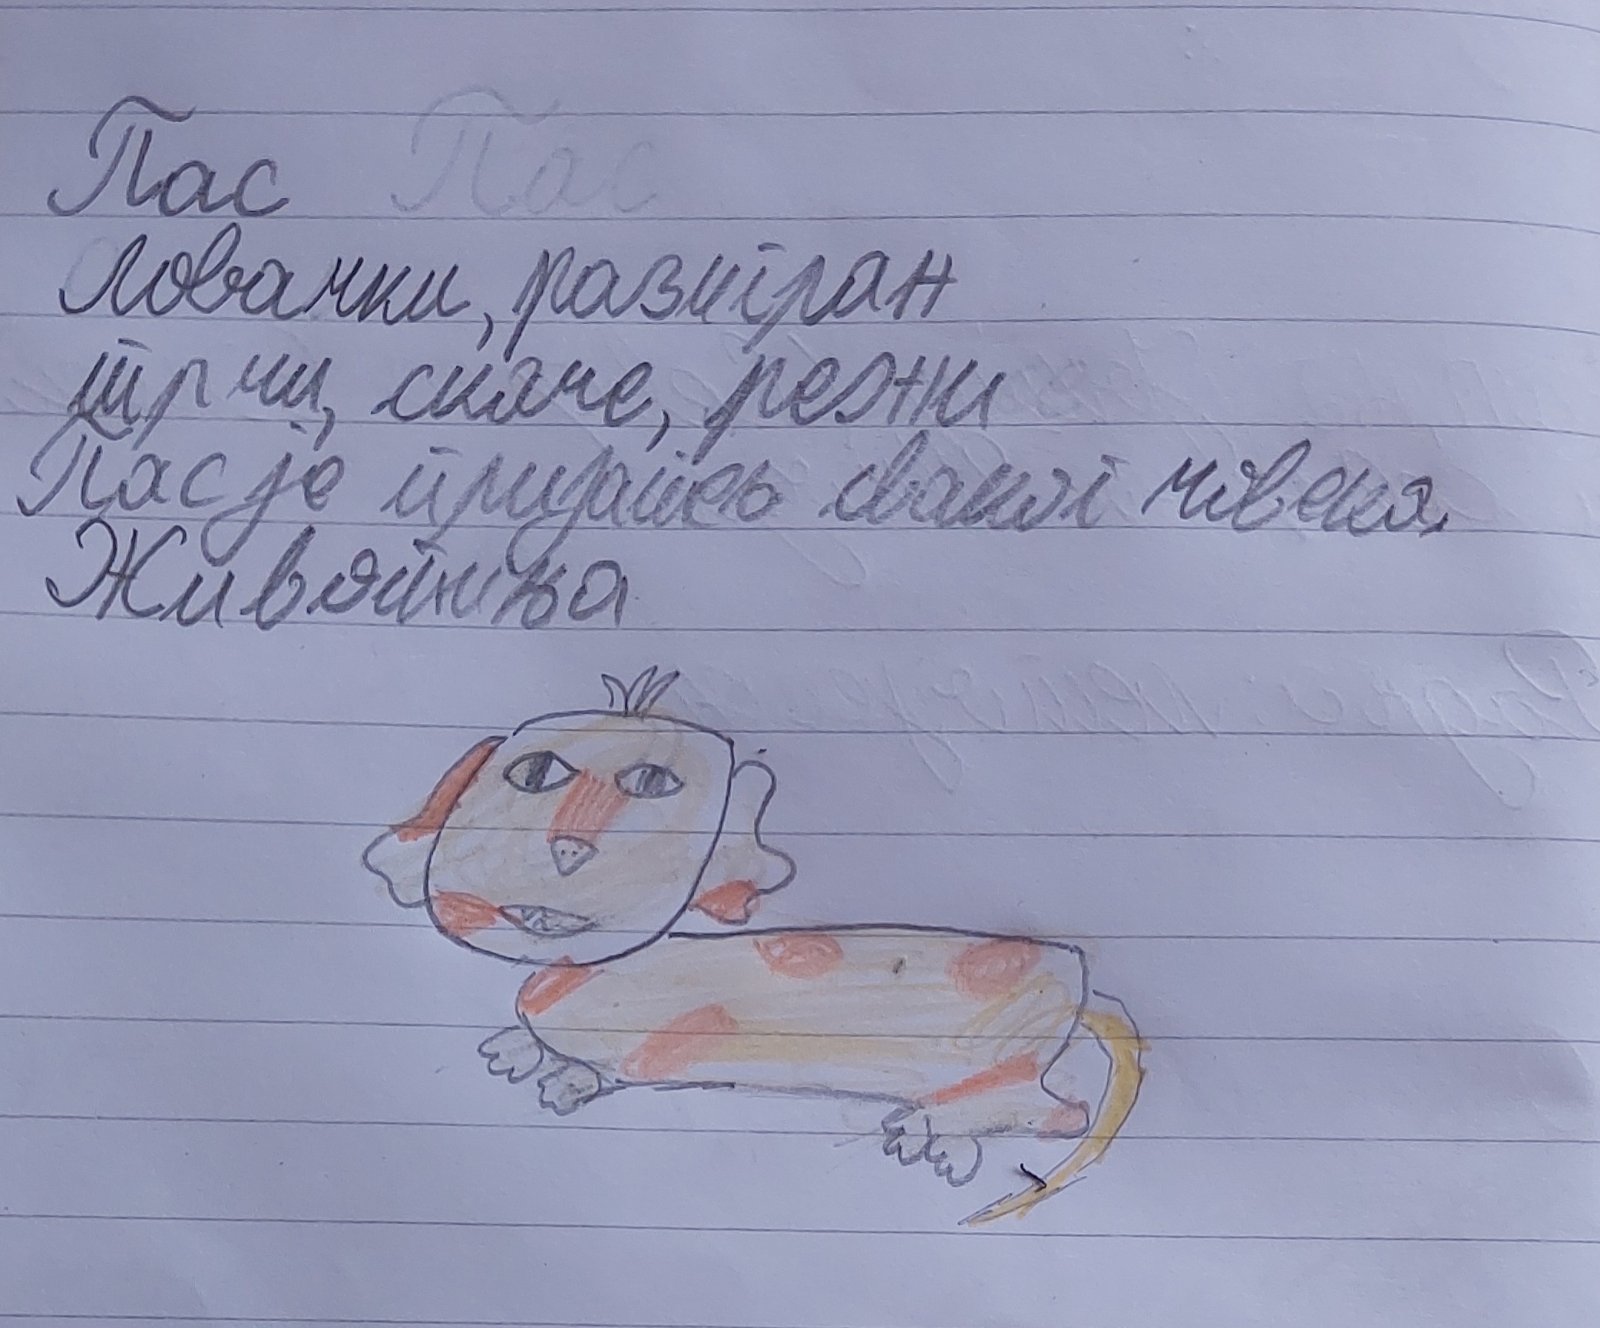 Пас Пас
Ловачки, разигран
трчи, скаче, режи
Пас је пријатељ сваког човека.
Животиња